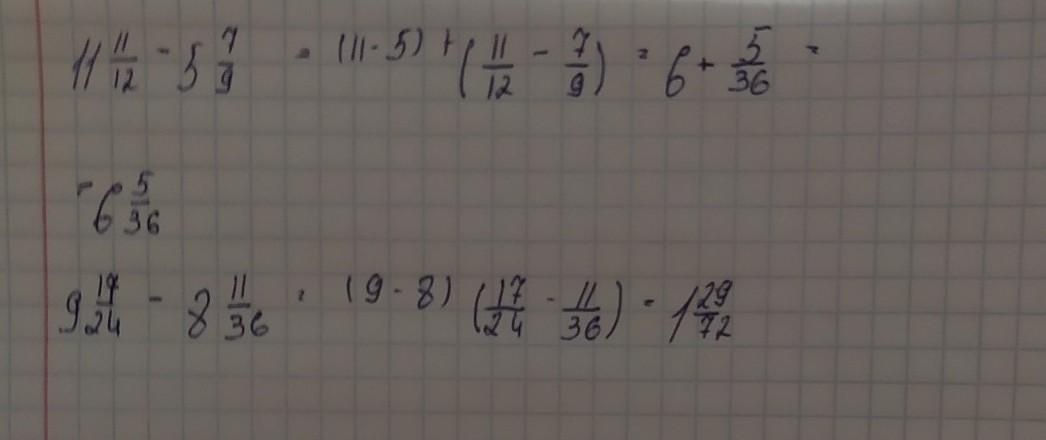 11 11/12 - 5 7/9 = (11 - 5) + (11/12 - 7/9) = 6 + 5/36 =
= 6 5/36
9 17/24 - 8 11/36 = (9 - 8) (17/24 - 11/36) = 1 29/72